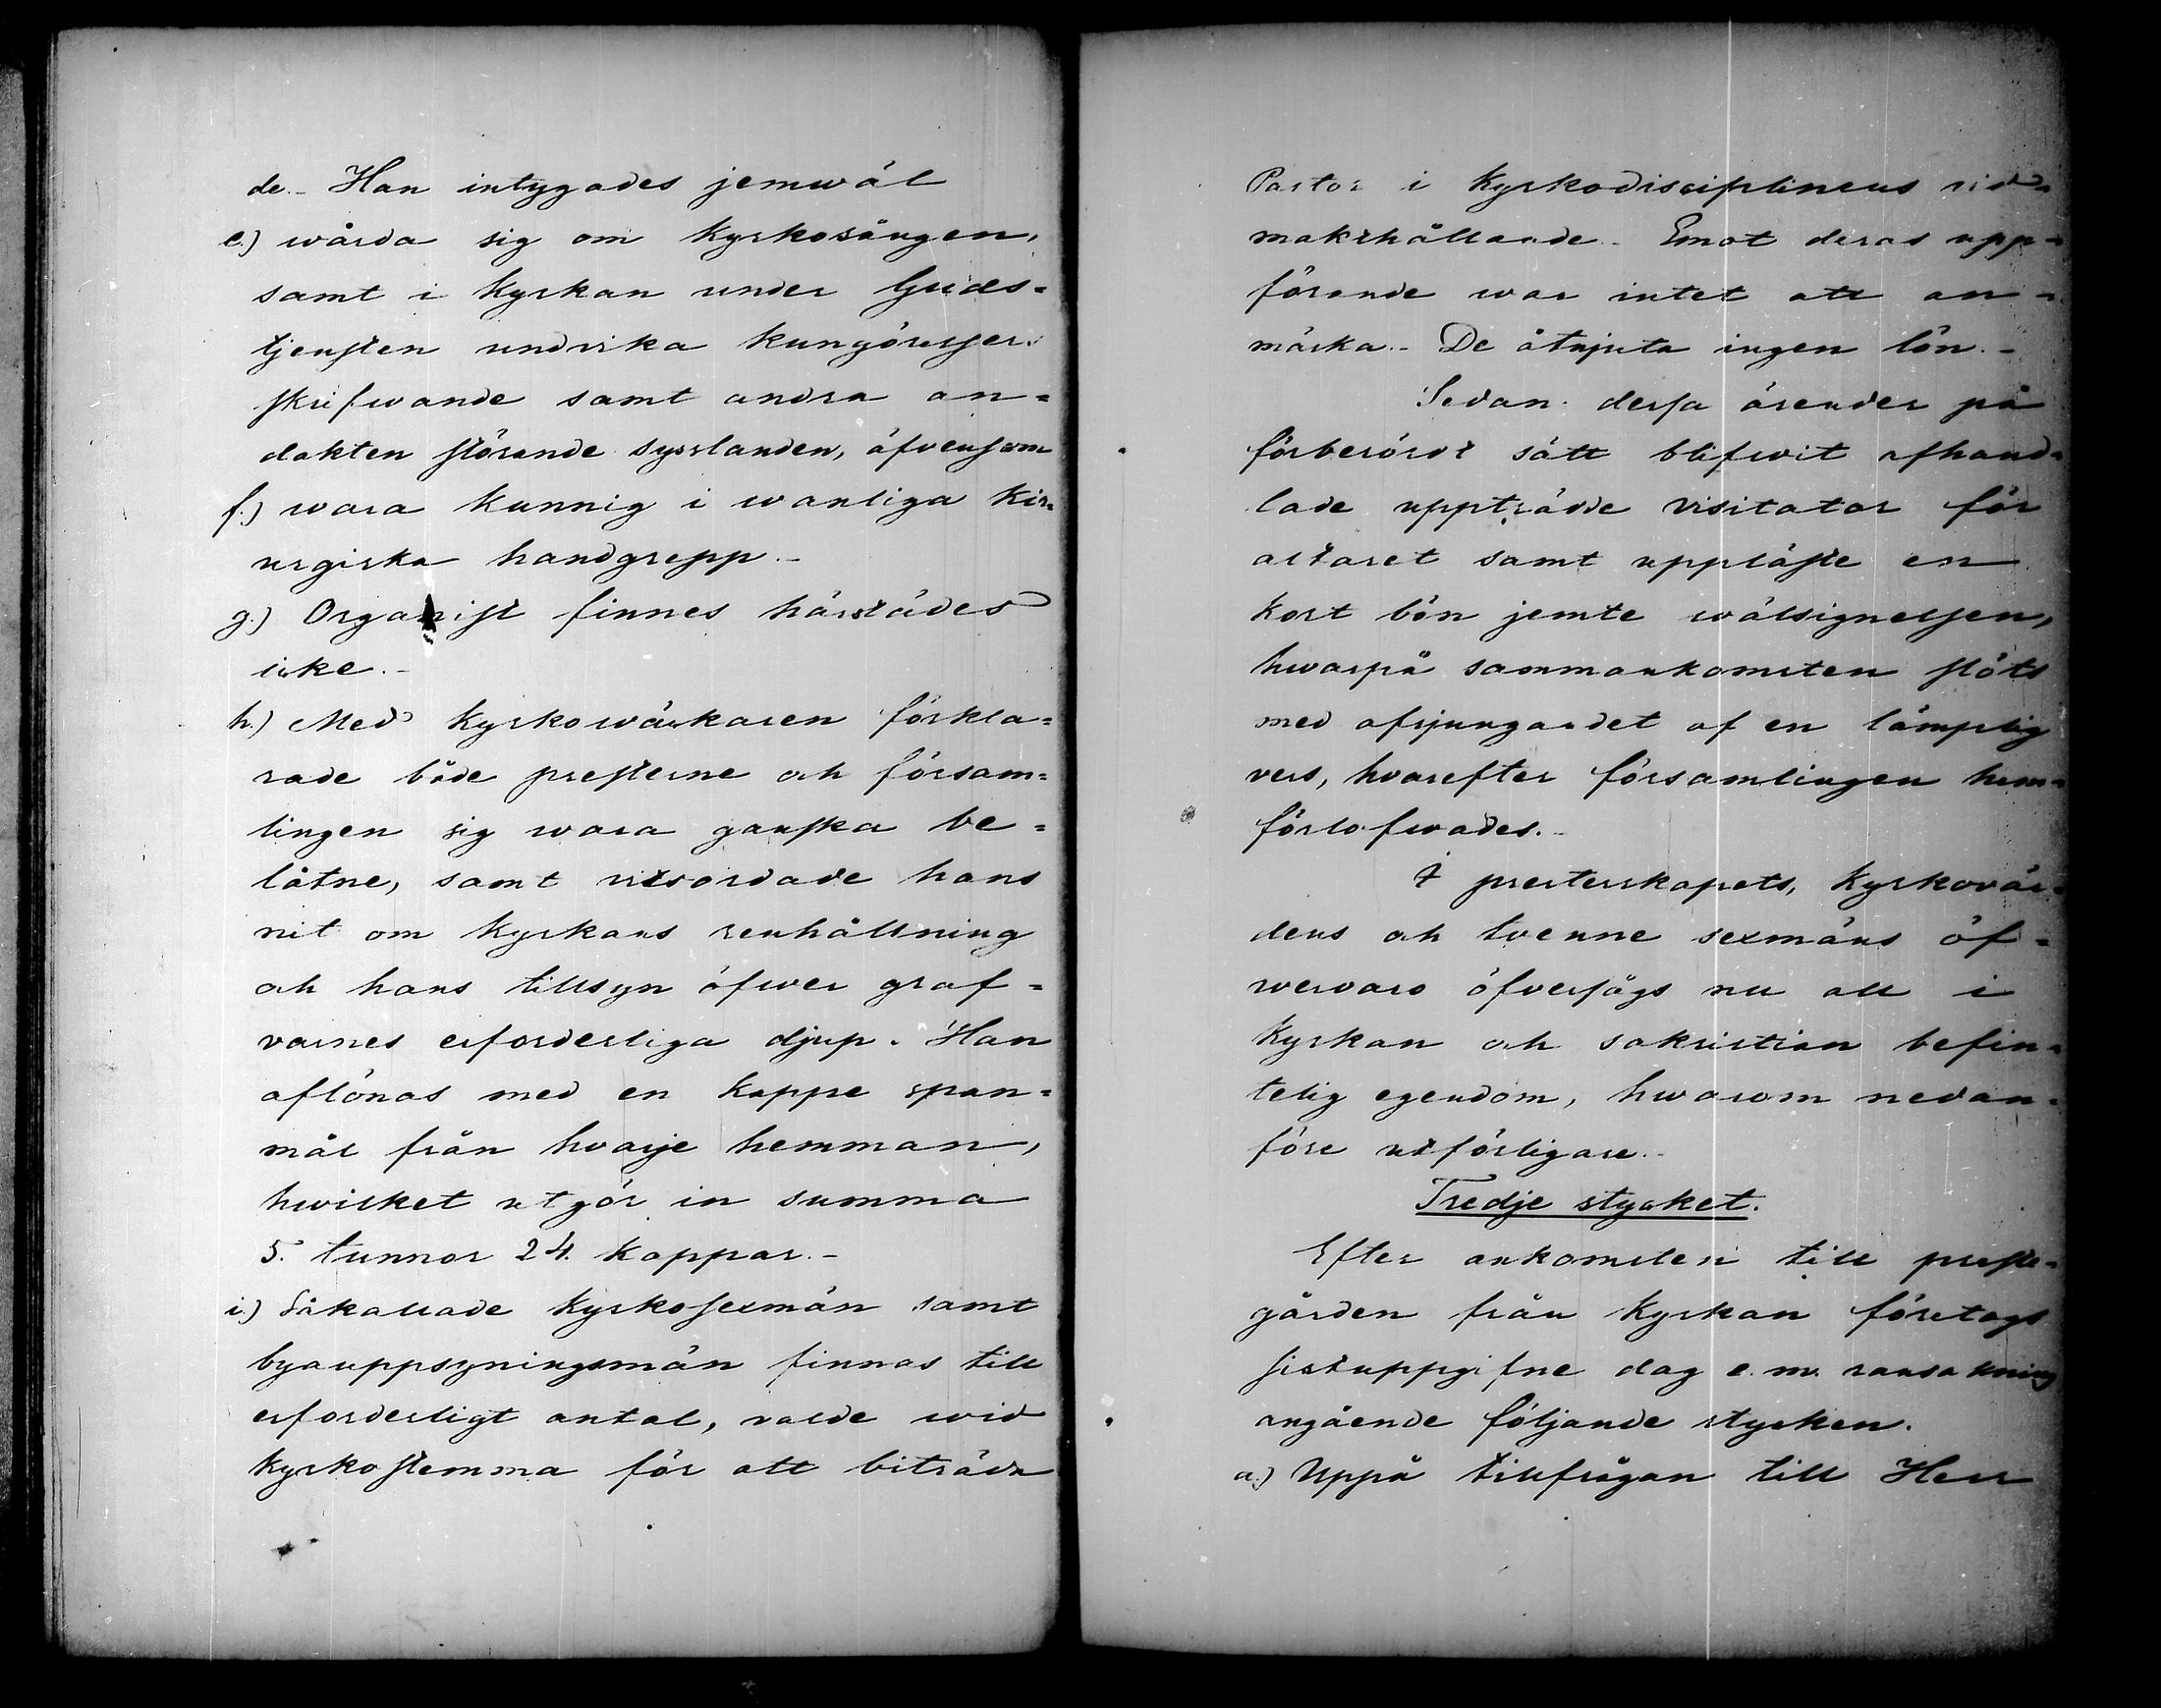 de.- Han intygades jemwäl
e.) wårda sig om kyrkosången,
samt i kyrkan under Guds-
tjensten undvika kungörelser:
skrifwande samt andra an-
dakten störande sysslanden, äfvensom
f.) wara kunnig i wanliga kir-
urgiska handgrepp.-
g.) Organist finnes härstädes
icke.-
h.) Med kyrkowäckaren förkla-
rade både presterne och försam-
lingen sig wara ganska be-
låtne, samt vitsordade hans
nit om kyrkans renhållning
och hans tillsyn öfwer graf-
varnes erforderliga djup. Han
aflönas med en kappe span-
mål från hvarje hemman,
hwilket utgör in summa
5. tunnor 24. kappar.-
i.) Såkallade kyrkosexmän samt
byauppsyningsmän finnas till
erforderligt antal, valde wid
kyrkostemma för att biträda
Pastor i kyrkodisciplinens vid-
makthållande.- Emot deras upp-
förande war intet att an-
märka.- De åtnjuta ingen lön.-
Sedan dessa ärender på
förberördt sätt blifwit afhand-
lade uppträdde visitator för
altaret samt uppläste en
kort bön jemte wälsignelsen,
hwarpå sammankomsten slöts
med afsjungandet af en lämplig
vers, hvarefter församlingen hem-
förlofwades.-
I presterskapets, kyrkovär-
dens och tvenne sexmäns öf-
wervaro öfversågs nu all i
kyrkan och sakristian befin-
telig egendom, hwarom nedan-
före utförligare.-
Tredje stycket.
Efter ankomsten till preste-
gården från kyrkan företogs
sistuppgifne dag e. m. ransakning
angående följande stycken.
a.) Uppå tillfrågan till Herr